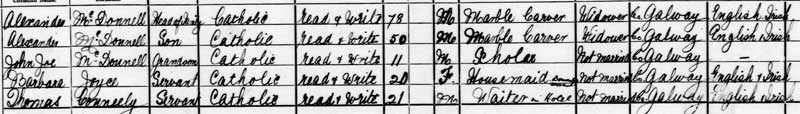 Alexander McDonnell Head of Family Catholic read & write 78 M Marble Carver Widower Co Galway English Irish
Alexander McDonnell Son Catholic read & write 50 M Marble Carver Widower Co Galway English & Irish
John Joe McDonnell Grandson Catholic read & write 11 M Scholar Not Married Co Galway —
Barbara Joyce Servant Catholic read & write 20 F. Housemaid Not married Co Galway English & Irish
Thomas Conneely Servant Catholic read & write 21 M Waiter in Hotel Not married Co Galway English & Irish